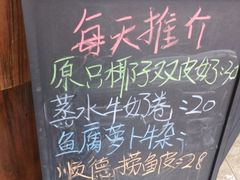 每天推介
原只椰子双皮奶:30
蒸水牛奶卷:20
鱼腐萝卜牛杂:
顺德捞鱼皮:28